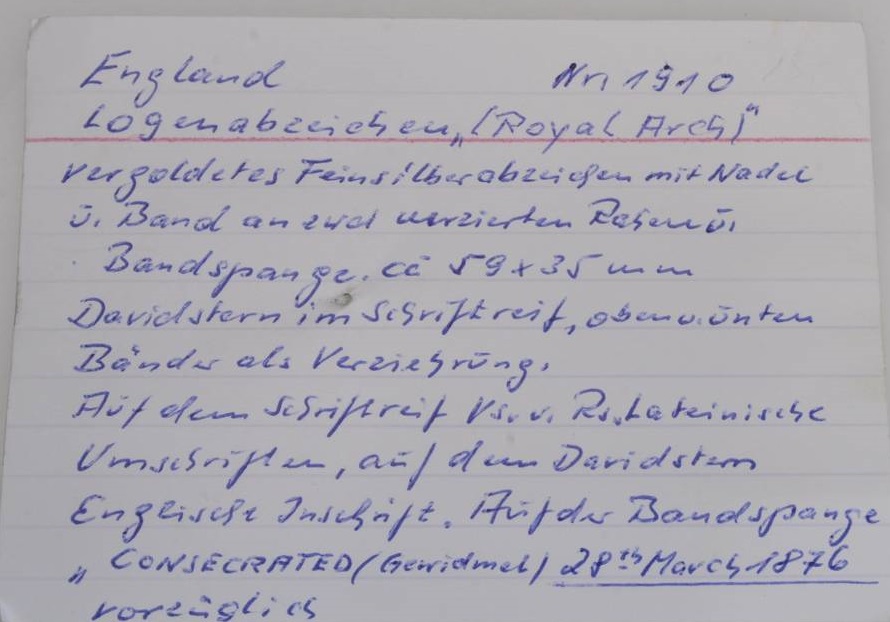 England Nr. 1910
Logenabzeichen „(Royal Arch)"
vergoldetes Feinsilberabzeichen mit Nadel
ü. Band an zwei verzierten Rosen ü.
Bandspange. ca 59 x 35 mm
Davidstern im Schriftreif, oben u. ünten
Bänder als Verziehrüng.
Aüf dem Schriftreif Vs. u. Rs. Lateinische
Umschriften, aüf dem Davidstern
Englische Inschrift. Aüf der Bandspange
„CONSECRATED (Gewidmet) 28th March 1876
vorzüglich